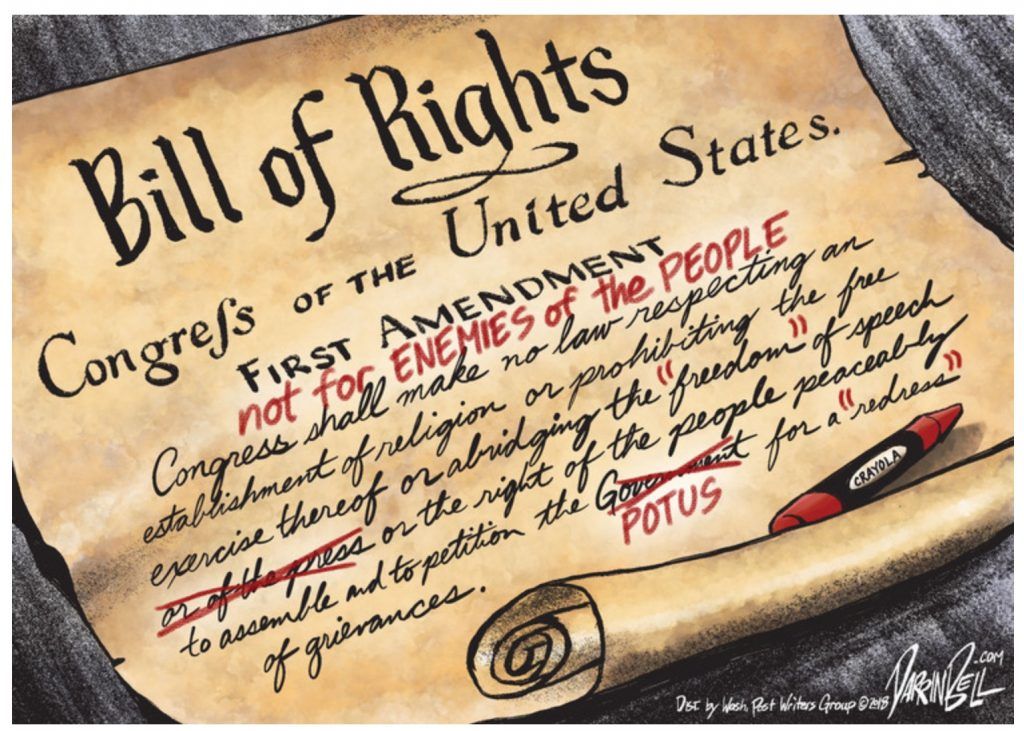 Bill of Rights
Congreſs OF THE United States.
FIRST AMENDMENT
not for ENEMIES of the PEOPLE
Congress shall make no law respecting an
establishment of religion or prohibiting the free
exercise thereof or abridging the "freedom" of speech
or of the press or the right of the people peaceably
to assemble and to petition the Government for a "redress"
POTUS
of grievances.
CRAYOLA
DARRINBELL.COM
DIST. by Wash. Post Writers Group ©2018